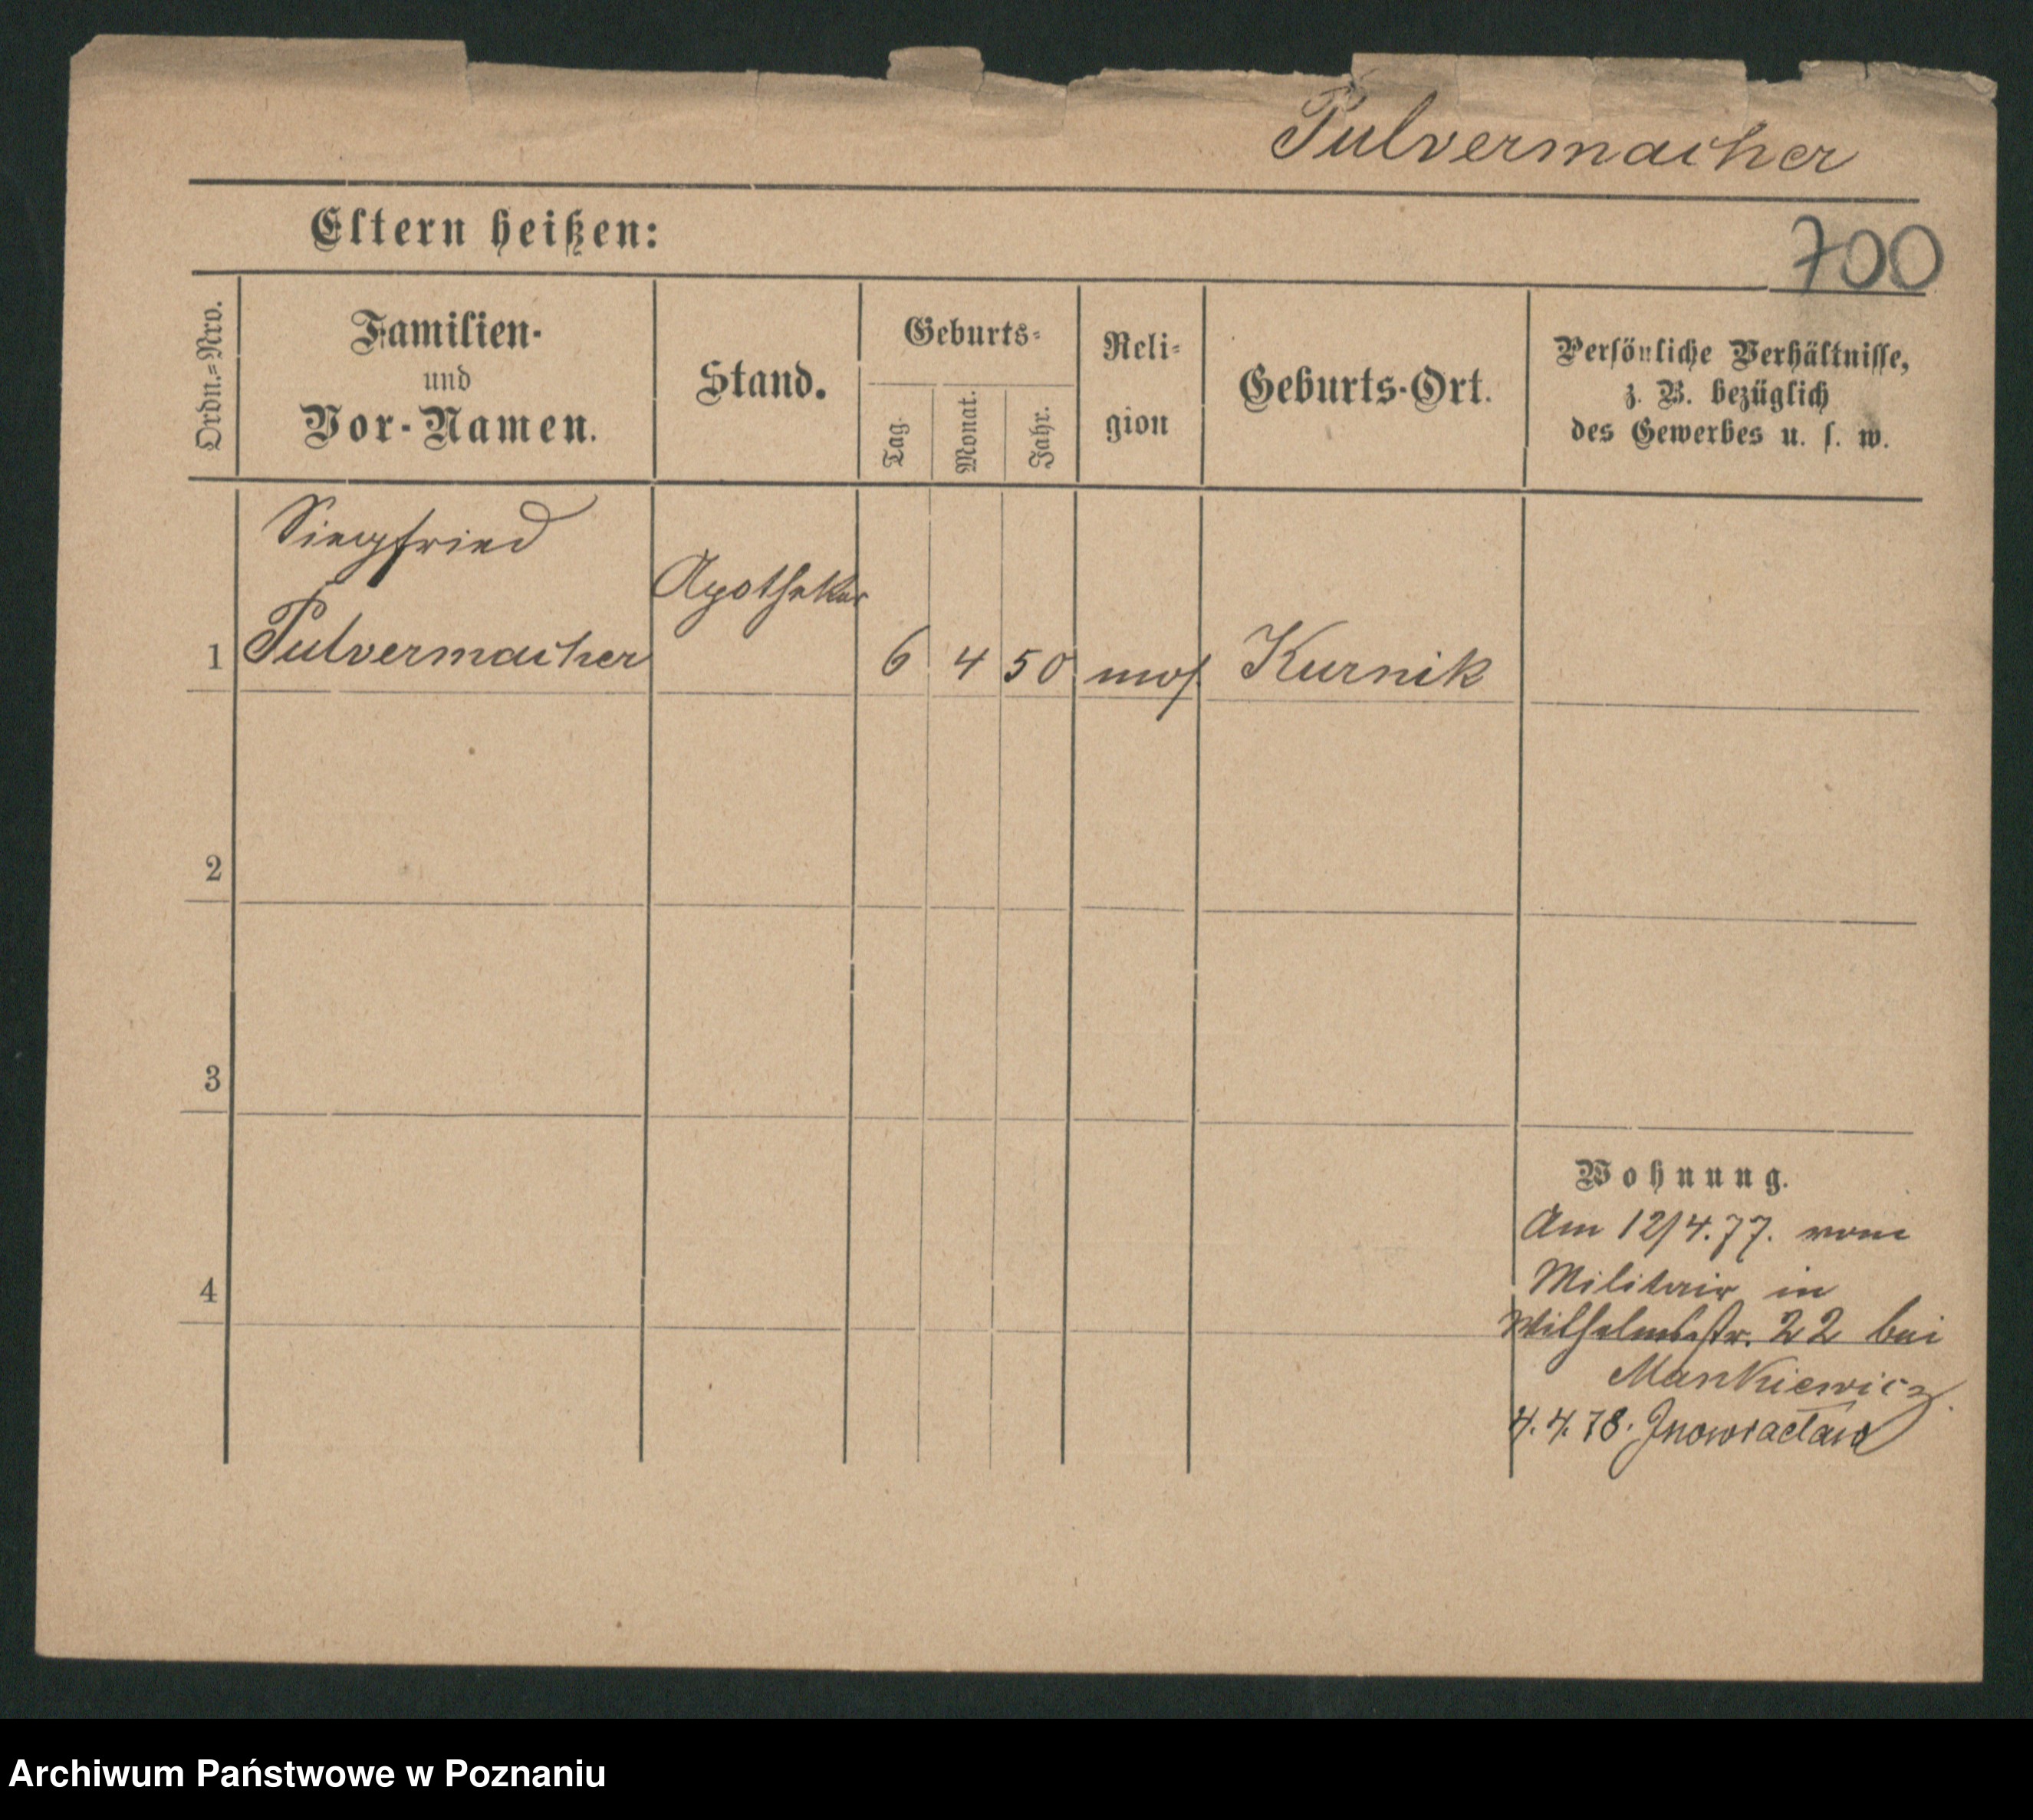 Pulvermacher
Eltern heißen:
700
Ordn.=Nro.
Familien-
und
Vor-Namen.
Stand.
Geburts=
Tag.
Monat.
Jahr.
Reli=
gion
Geburts-Ort.
Persönliche Verhältnisse,
z. B. bezüglich
des Gewerbes u. s. w.
Siegfried
Apotheker
1 Pulvermacher 6 4 50 mos. Kurnik
2
3
Wohnung.
Am 12/4.77. vom
4
Militair in
Wilhelmstr. 22 bei
Mankiewicz.
4.4.78. Inowraclaw
Archiwum Państwowe w Poznaniu